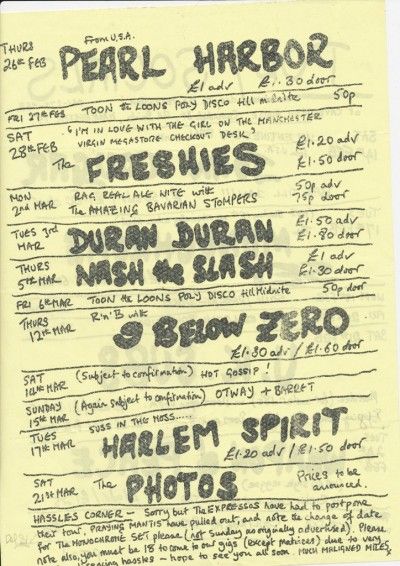 From U.S.A.
THURS 26th FEB PEARL HARBOR
£1 adv £1.30 door
FRI 27th FEB TOON the LOONS POLY DISCO till midnite 50p
SAT 28th FEB "I'M IN LOVE WITH THE GIRL ON THE MANCHESTER
VIRGIN MEGASTORE CHECKOUT DESK"
The FRESHIES £1.20 adv
£1.50 door
MON 2nd MAR RAG REAL ALE NITE with 50p adv
The AMAZING BAVARIAN STOMPERS 75p door
TUES 3rd MAR DURAN DURAN £1.50 adv
£1.80 door
THURS 5th MAR NASH the SLASH £1 adv
£1.30 door
FRI 6th MAR TOON the LOONS POLY DISCO till Midnite 50p door
THURS 12th MAR R'n'B with
9 BELOW ZERO
£1.30 adv / £1.60 door
SAT 14th MAR (Subject to confirmation) HOT GOSSIP!
SUNDAY 15th MAR (Again Subject to confirmation) OTWAY + BARRET
TUES 17th MAR SUSS IN THE MOSS.....
HARLEM SPIRIT
£1.20 adv / £1.50 door
SAT 21st MAR The PHOTOS Prices to be
announced.
HASSLES CORNER - Sorry but The EXPRESSOS have had to postpone
their tour, PRAYING MANTIS have pulled out, and note the change of date
for The MONOCHROME SET please (not Sunday as originally advertised). Please
note also, you must be 18 to come to our gigs (except matinees) due to very
hassles - hope to see you all soon. MUCH MALIGNED MILES